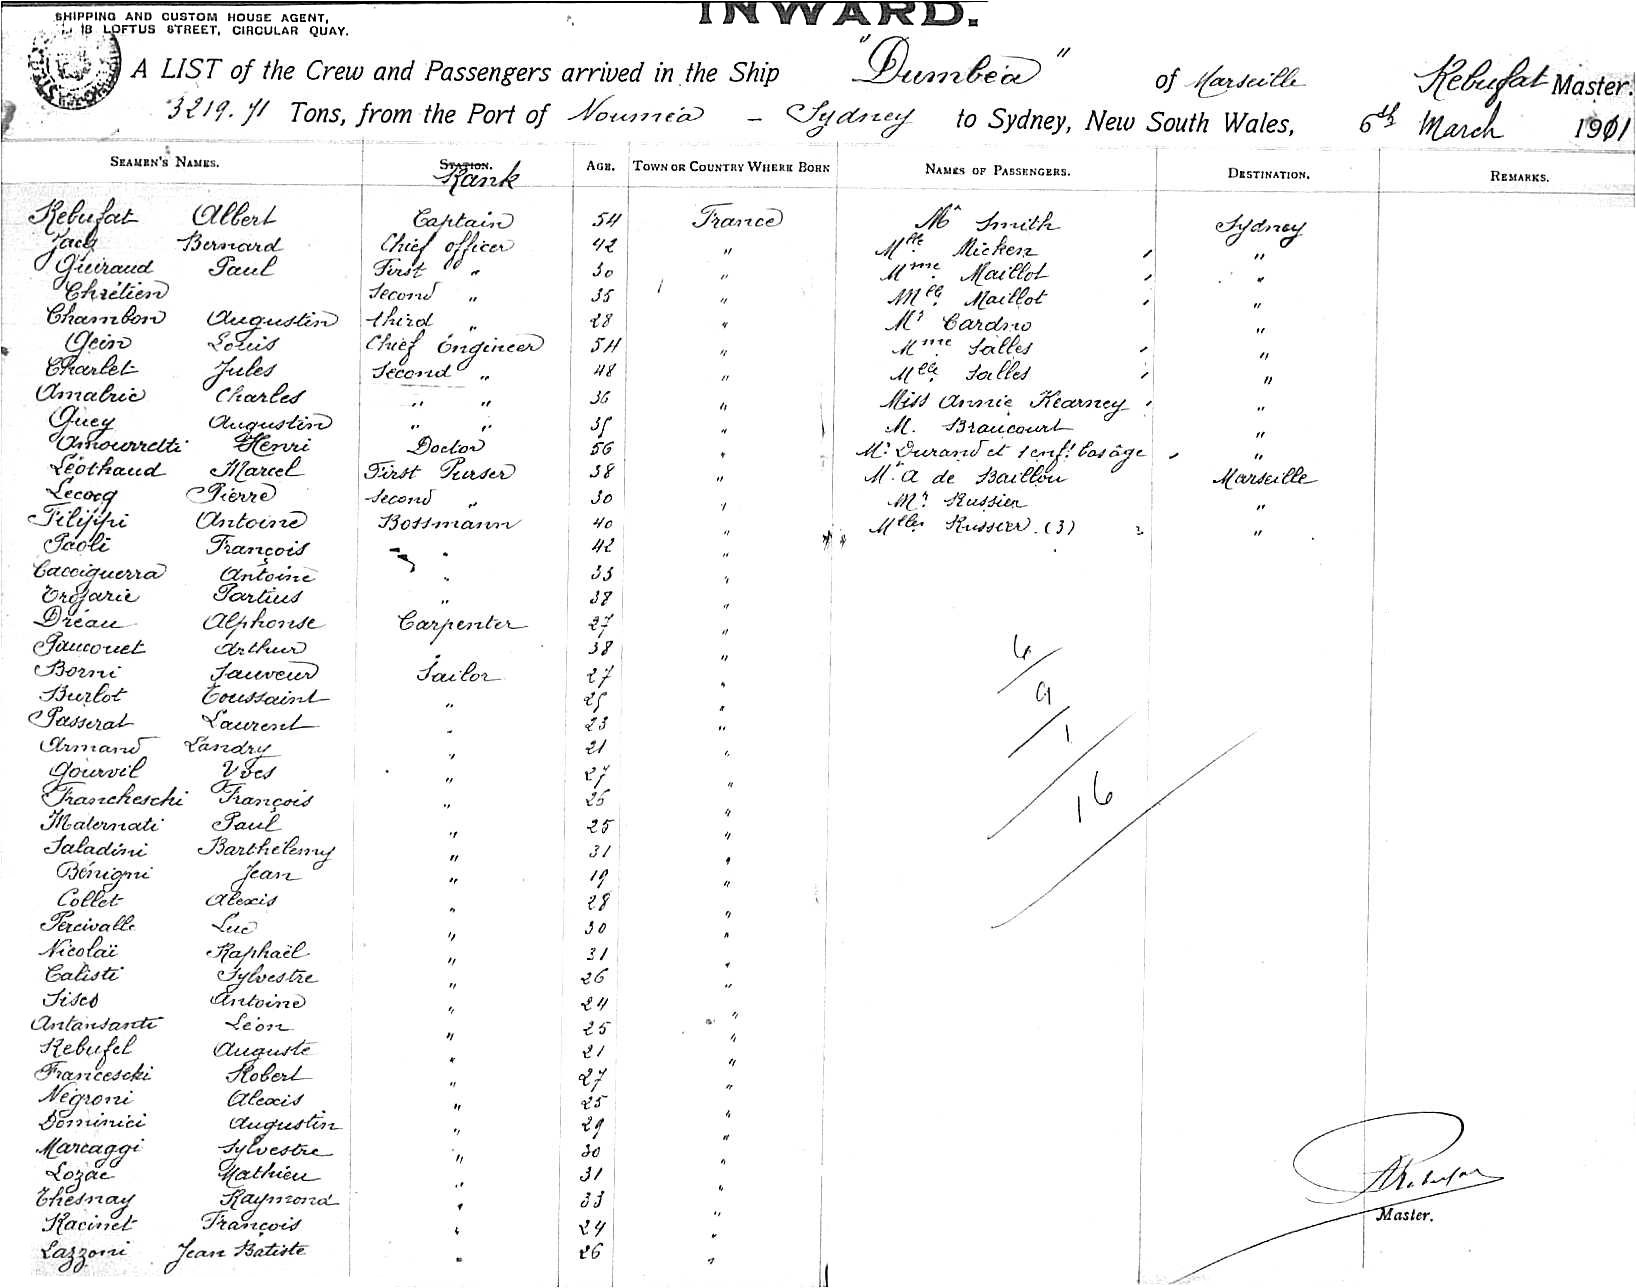 INWARD.
SHIPPING AND CUSTOM HOUSE AGENT,
18 LOFTUS STREET, CIRCULAR QUAY.
A LIST of the Crew and Passengers arrived in the Ship "Dumbéa" of Marseille Rebufat Master.
3219.71 Tons, from the Port of Nouméa - Sydney to Sydney, New South Wales, 6th March 1911
SEAMEN'S NAMES. STATION. Rank AGE. TOWN OR COUNTRY WHERE BORN NAMES OF PASSENGERS. DESTINATION. REMARKS.
Rebufat Albert Captain 54 France Mr Smith Sydney
Bernard Chief officer 42 " Mlle Micken " "
Guiraud Paul First " 30 " Mme Maillot " "
Chrétien Second " 35 " Mlle Maillot " "
Chambon Augustin third " 28 " Mr Cardno "
Gein Louis Chief Engineer 54 " Mme Salles " "
Charlet Jules Second " 48 " Mlle Salles " "
Amalric Charles " " 36 " Miss Annie Kearney " "
Guey Augustin " " 35 " M. Braucourt "
Amourretti Henri Doctor 56 " Mr Durand et 1 enft bas âge " "
Léothaud Marcel First Purser 38 " Mr A de Baillou Marseille
Lecocq Pierre Second " 30 " Mr Russier "
Filippi Antoine Bossmann 40 " Mlles Russier (3) " "
Paoli François " 42 "
Cacciguerra Antoine " 33 "
Trojarie Partius " 38 "
Dréau Alphonse Carpenter 27 "
Paucouet Arthur " 38 " 6
Borni Sauveur Sailor 27 "
Burlot Toussaint " 25 " 9
Passerat Laurent " 23 "
Armand Landry " 21 " 1
Gourvil Yves " 27 "
Francheschi François " 26 " 16
Maternati Paul " 25 "
Saladini Barthélemy " 31 "
Bénigni Jean " 19 "
Collet Alexis " 28 "
Percivalle Luc " 30 "
Nicolaï Raphaël " 31 "
Calisti Sylvestre " 26 "
Sisco Antoine " 24 "
Antonsanti Léon " 25 "
Rebufel Auguste " 21 "
Francescki Robert " 27 "
Négroni Alexis " 25 "
Dominici Augustin " 29 "
Marcaggi Sylvestre " 30 "
Lozac Mathieu " 31 "
Thesnay Raymond " 33 "
Racinet François " 24 "
Lazzoni Jean Batiste " 26 "
ARebufat
Master.